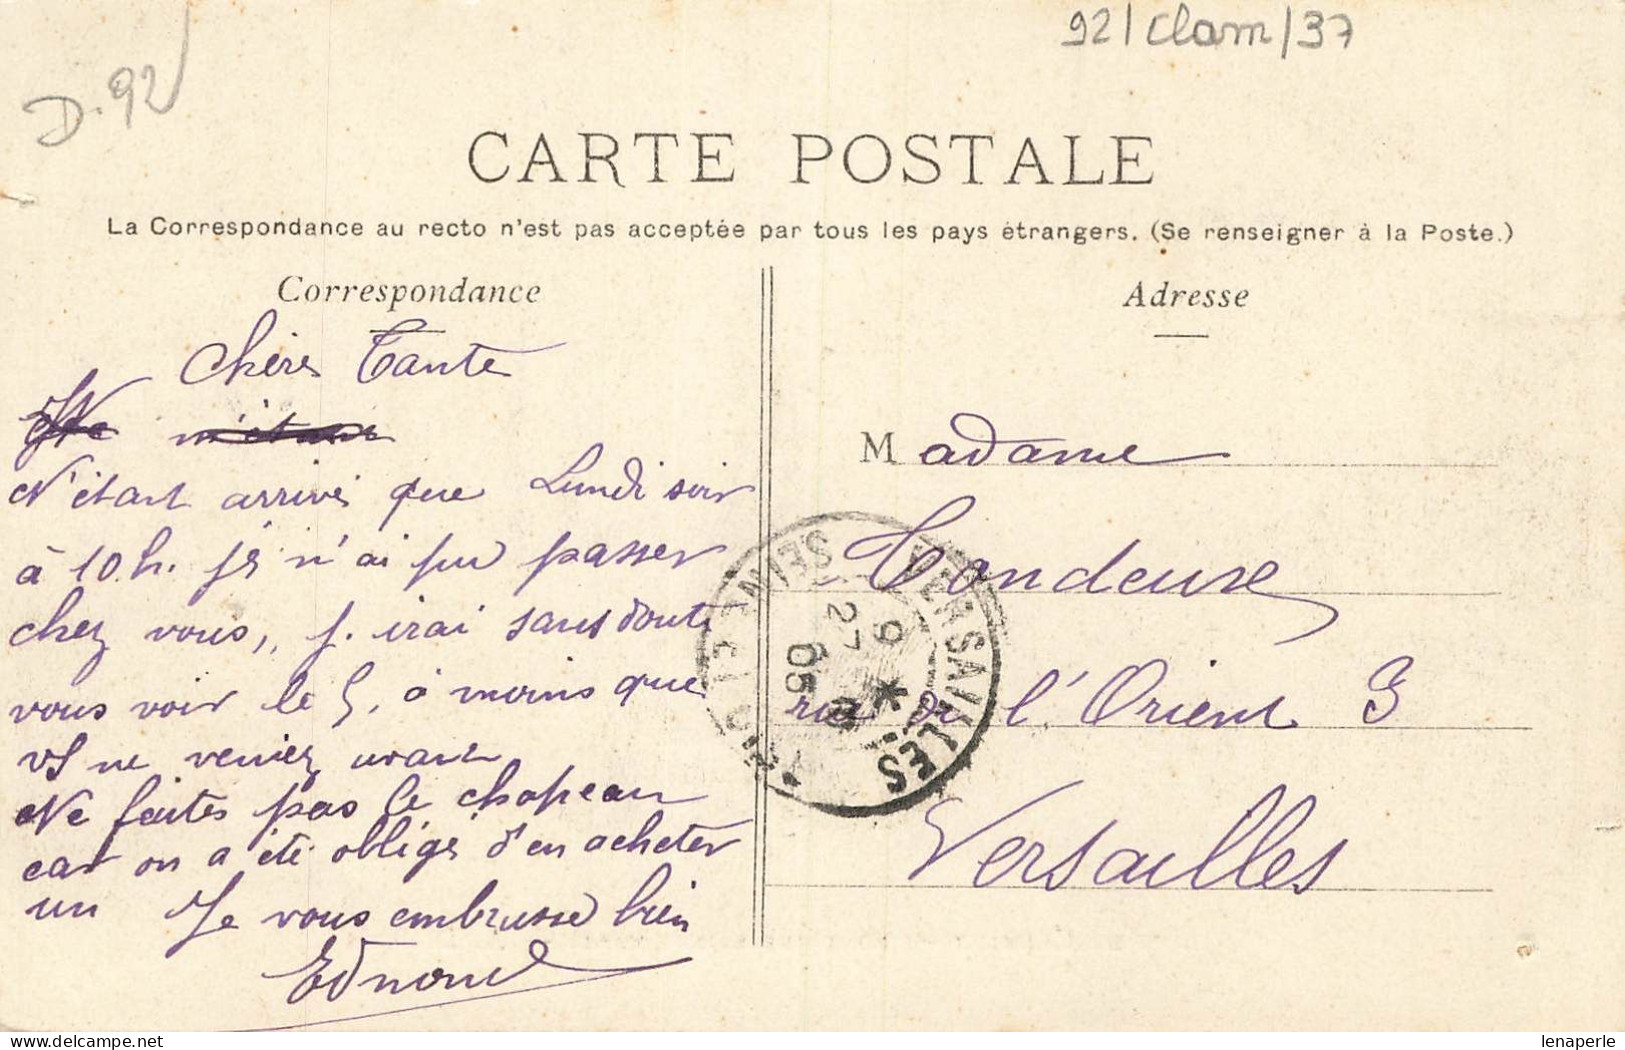 92/Clam/37
D.92
CARTE POSTALE
La Correspondance au recto n'est pas acceptée par tous les pays étrangers. (Se renseigner à la Poste.)
Correspondance
Chère Tante
N'étant arrivé que Lundi soir
à 10 h. je n'ai pu passer
chez vous, j. irai sans doute
vous voir le 5, à moins que
vs ne veniez avant
Ne faites pas le chapeau
car on a été obligé d'en acheter
un Je vous embrasse bien
Edmond
Adresse
Madame
Tondeuse
rue de l'Orient 3
Versailles
VERSAILLES
SEINE
9 *
27
05
lenaperle